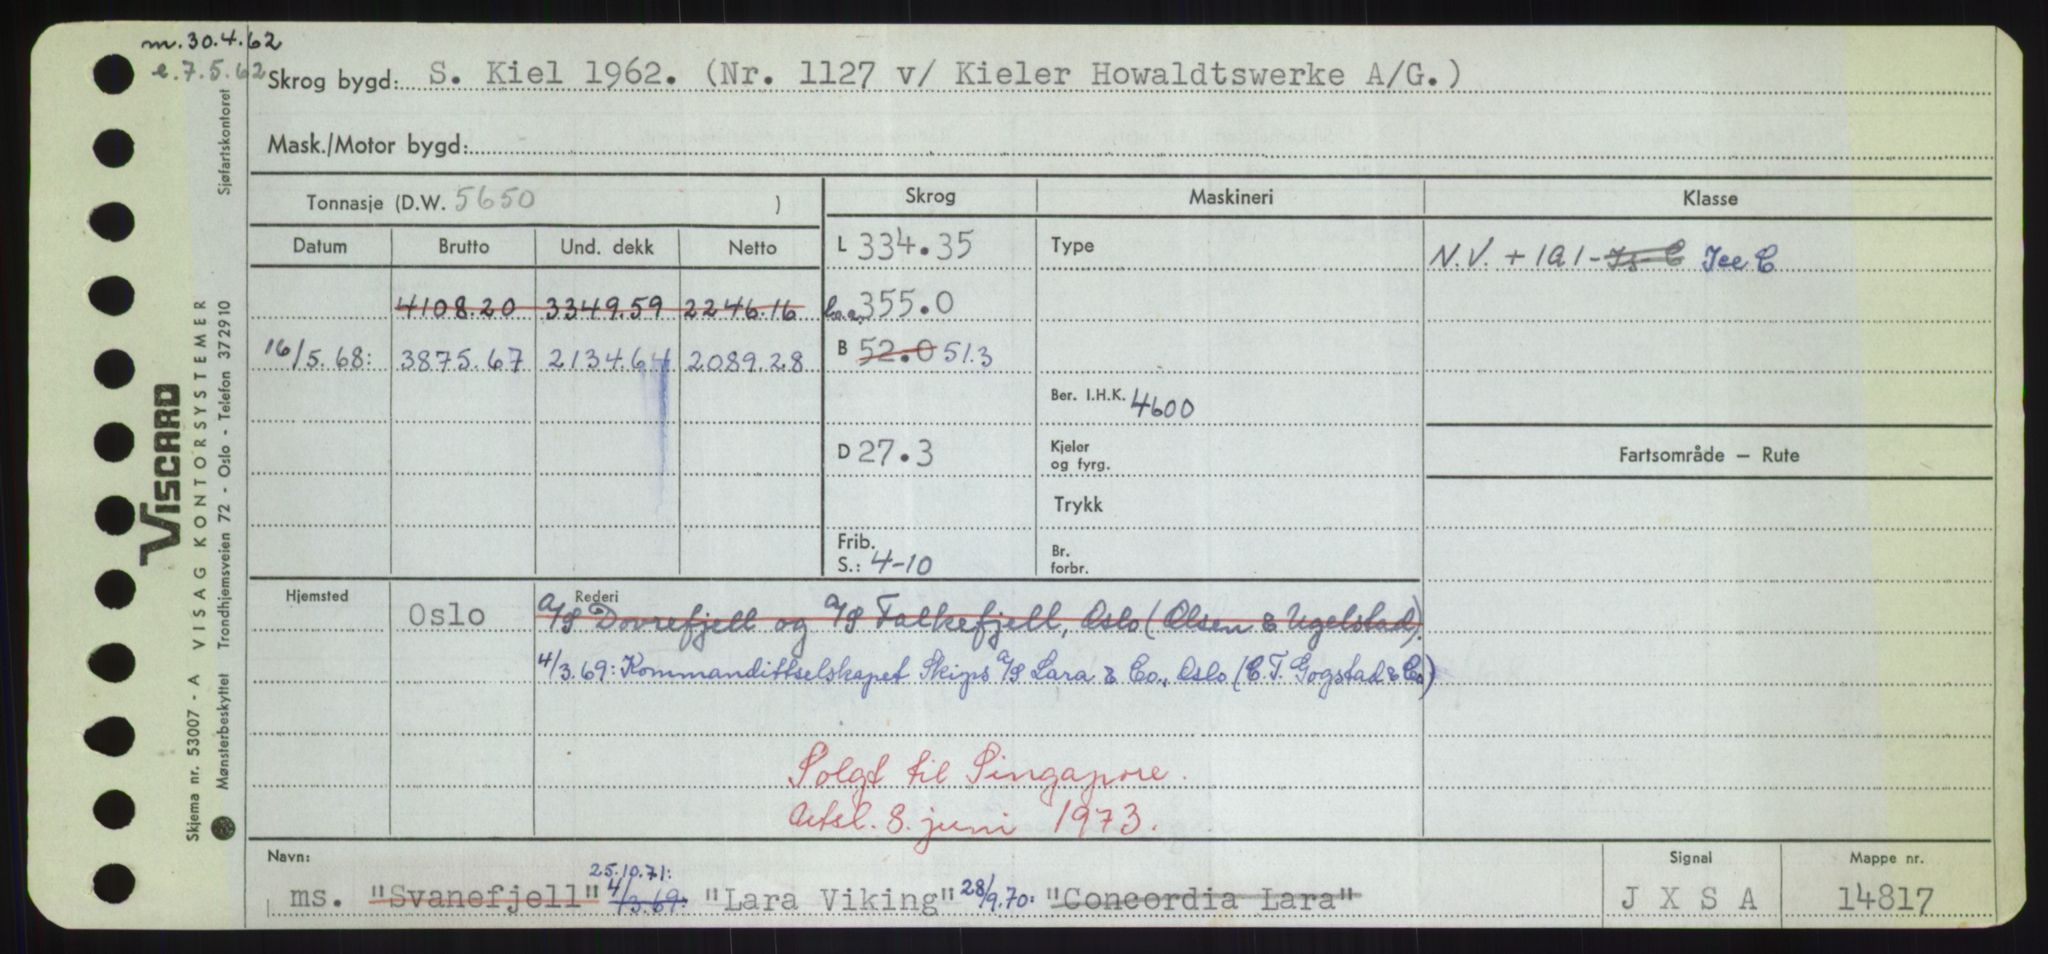 m.30.4.62
e.7.5.62
Skrog bygd: S. Kiel 1962. (Nr. 1127 v/ Kieler Howaldtswerke A/G.)
Mask./Motor bygd:
Tonnasje (D.W. 5650 )
Skrog Maskineri Klasse
Datum Brutto Und. dekk Netto
L 334.35 Type N.V. + 1A1 - Is C Ice C
4108.20 3349.59 2246.16 L.o.a. 355.0
16/5.68: 3875.67 2134.64 2089.28 B 52.0 51.3
Ber. I.H.K. 4600
D 27.3 Kjeler og fyrg. Fartsområde – Rute
Trykk
Frib. S.: 4-10 Br. forbr.
Hjemsted Oslo Rederi A/S Dovrefjell og A/S Falkefjell, Oslo (Olsen & Ugelstad).
4/3.69: Kommandittselskapet Skips A/S Lara & Co., Oslo (C.T. Gogstad & Co)
Solgt til Singapore.
Utsl. 8. juni 1973.
Navn: Signal Mappe nr.
25.10.71:
ms. "Svanefjell" 4/3.69: "Lara Viking" 28/9.70: "Concordia Lara" J X S A 14817
VISCARD
Skjema nr. 53007 - A VISAG KONTORSYSTEMER
Mønsterbeskyttet Trondhjemsveien 72 - Oslo - Telefon 372910 Sjøfartskontoret